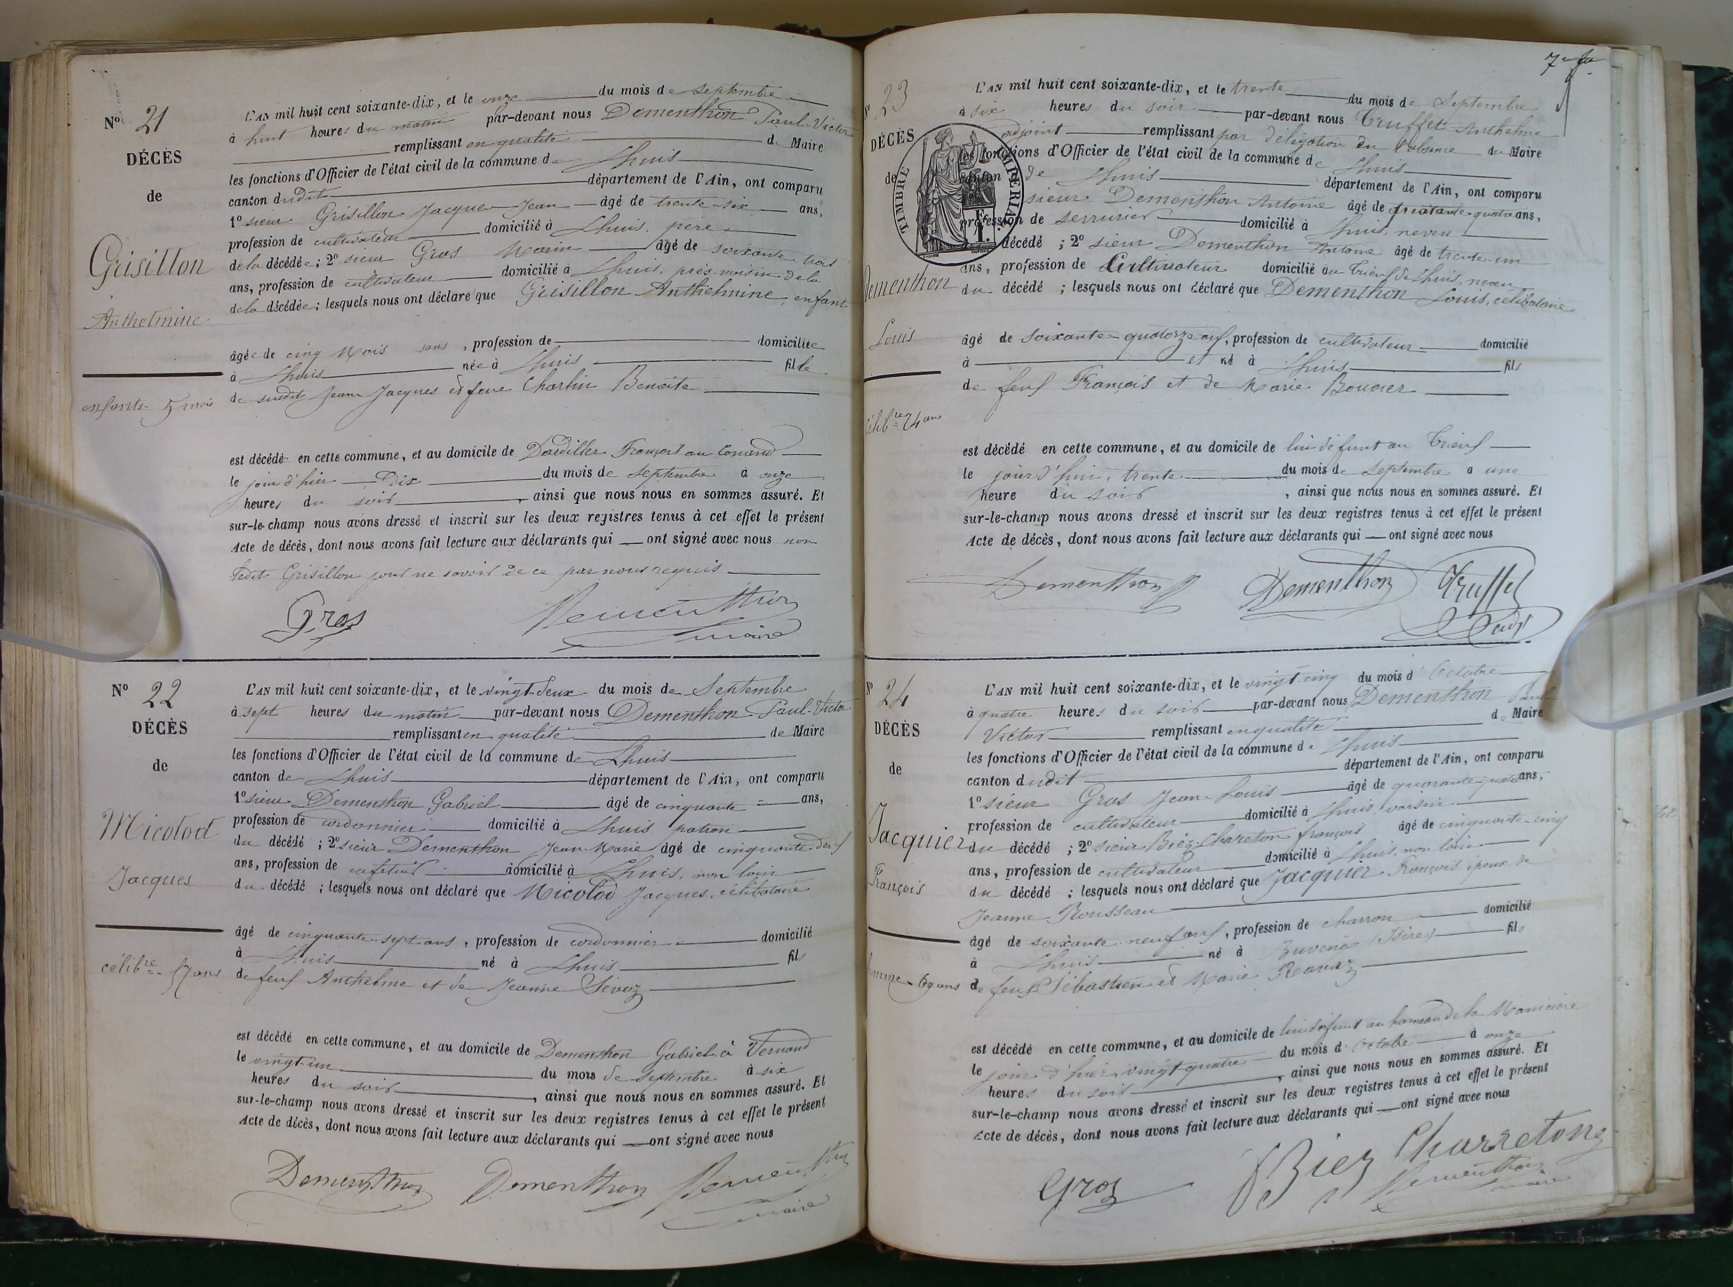 N° 21
DÉCÈS
de
Grisillon
Anthelmine
enfant 5 mois
L'AN mil huit cent soixante-dix, et le onze du mois de septembre
à huit heures du matin par-devant nous Dementhon Paul-Victor
remplissant en qualité de Maire
les fonctions d'Officier de l'état civil de la commune de Lhuis
canton dudit département de l'Ain, ont comparu
1° sieur Grisillon Jacques Jean âgé de trente-six ans,
profession de cultivateur domicilié à Lhuis, père
de la décédée; 2° sieur Gros Marin âgé de soixante trois
ans, profession de cultivateur domicilié à Lhuis, près voisin de la
de la décédée; lesquels nous ont déclaré que Grisillon Anthelmine, enfant
âgée de cinq mois sans, profession de domiciliée
à Lhuis née à Lhuis fille
de susdit Jean Jacques et feue Charlin Benoite
est décédé en cette commune, et au domicile de François au
le jour d'hier Dix du mois de septembre à onze
heures du soir, ainsi que nous nous en sommes assuré. Et
sur-le-champ nous avons dressé et inscrit sur les deux registres tenus à cet effet le présent
Acte de décès, dont nous avons fait lecture aux déclarants qui ont signé avec nous non
ledit Grisillon pour ne savoir de ce par nous requis
Gros Dementhon
maire
N° 22
DÉCÈS
de
Nicolod
Jacques
célibre 57 ans
L'AN mil huit cent soixante-dix, et le vingt-deux du mois de Septembre
à sept heures du matin par-devant nous Dementhon Paul-Victor
remplissant en qualité de Maire
les fonctions d'Officier de l'état civil de la commune de Lhuis
canton de Lhuis département de l'Ain, ont comparu
1° sieur Dementhon Gabriel âgé de cinquante ans,
profession de cordonnier domicilié à Lhuis patron
du décédé; 2° sieur Dementhon Jean-Marie âgé de cinquante-deux
ans, profession de cafetier domicilié à Lhuis, non loin
du décédé; lesquels nous ont déclaré que Nicolod Jacques, célibataire
âgé de cinquante-sept ans, profession de cordonnier domicilié
à Lhuis né à Lhuis fils
de feus Anthelme et de Jeanne Sevoz
est décédé en cette commune, et au domicile de Dementhon Gabriel à Vernand
le vingt-un du mois de septembre à six
heures du soir, ainsi que nous nous en sommes assuré. Et
sur-le-champ nous avons dressé et inscrit sur les deux registres tenus à cet effet le présent
Acte de décès, dont nous avons fait lecture aux déclarants qui ont signé avec nous
Dementhon Dementhon Dementhon
maire
7e fo
N° 23
DÉCÈS
de
Dementhon
Louis
célibre 74 ans
TIMBRE IMPÉRIAL
L'AN mil huit cent soixante-dix, et le trente du mois de Septembre
à six heures du soir par-devant nous Truffet Anthelme
adjoint remplissant par délégation en l'absence du Maire
les fonctions d'Officier de l'état civil de la commune de Lhuis
canton de Lhuis département de l'Ain, ont comparu
sieur Dementhon Antoine âgé de quarante-quatre ans,
profession de serrurier domicilié à Lhuis, neveu
décédé; 2° sieur Dementhon Antoine âgé de trente-un
ans, profession de Cultivateur domicilié au Crieuf de Lhuis, neveu
du décédé; lesquels nous ont déclaré que Dementhon Louis, célibataire
âgé de soixante-quatorze ans, profession de cultivateur domicilié
à et né à Lhuis fils
de feus François et de Marie Bouvier
est décédé en cette commune, et au domicile de lui défunt au Crieuf
le jourd'hui, trente du mois de septembre à une
heure du soir, ainsi que nous nous en sommes assuré. Et
sur-le-champ nous avons dressé et inscrit sur les deux registres tenus à cet effet le présent
Acte de décès, dont nous avons fait lecture aux déclarants qui ont signé avec nous
Dementhon Dementhon Truffet
adjt
N° 24
DÉCÈS
de
Jacquier
François
homme 69 ans
L'AN mil huit cent soixante-dix, et le vingt cinq du mois d'Octobre
à quatre heures du soir par-devant nous Dementhon Paul
Victor remplissant en qualité de Maire
les fonctions d'Officier de l'état civil de la commune de Lhuis
canton dudit département de l'Ain, ont comparu
1° sieur Gros Jean-Louis âgé de quarante-quatre ans,
profession de cultivateur domicilié à Lhuis, voisin
du décédé; 2° sieur Biez Chareton François âgé de cinquante-cinq
ans, profession de cultivateur domicilié à Lhuis, non loin
du décédé; lesquels nous ont déclaré que Jacquier François époux de
Jeanne Rousseau
âgé de soixante-neuf ans, profession de charron domicilié
à Lhuis né à (Isère) fils
de feus Sébastien et Marie
est décédé en cette commune, et au domicile de lui défunt au hameau de la
le jour d'hier vingt-quatre du mois d'Octobre à onze
heures du soir, ainsi que nous nous en sommes assuré. Et
sur-le-champ nous avons dressé et inscrit sur les deux registres tenus à cet effet le présent
Acte de décès, dont nous avons fait lecture aux déclarants qui ont signé avec nous
Gros Biez Charretong
Dementhon
maire